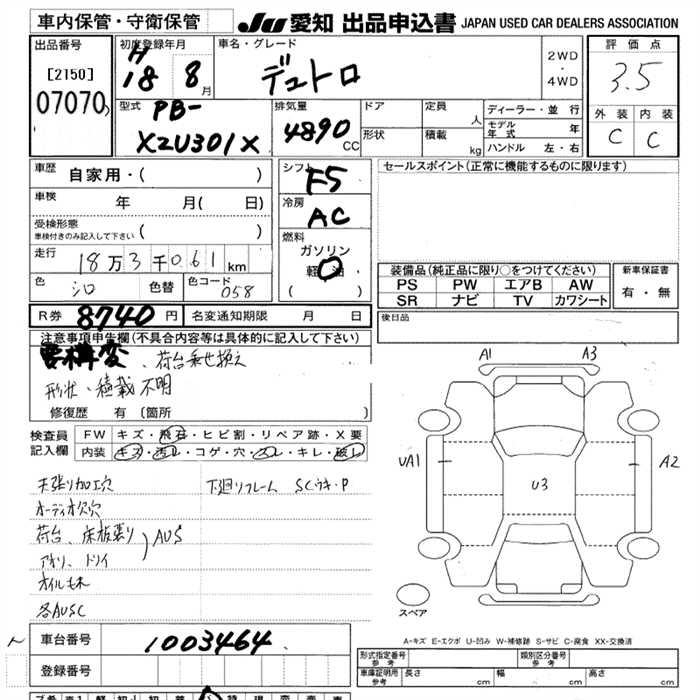 車内保管・守衛保管 JU 愛知 出品申込書 JAPAN USED CAR DEALERS ASSOCIATION
出品番号 初度登録年月 車名・グレード 2WD・4WD 評価点
[2150] H18 8月 デュトロ 3.5
07070
型式 PB-XZU301X 排気量 4890 CC ドア 定員 人 ディーラー・並行 外装 内装
形状 積載 kg モデル年式 年 C C
ハンドル 左・右
車歴 自家用・( ) シフト F5 セールスポイント(正常に機能するものに限ります)
車検 年 月( 日) 冷房 AC
受検形態 車検付きのみ記入して下さい ( )
燃料 ガソリン 軽油 ( )
走行 18万3千061 km
色 シロ 色替 色コード 058
装備品(純正品に限り○をつけてください) 新車保証書
PS PW エアB AW 有・無
SR ナビ TV カワシート
R券 8740円 名変通知期限 月 日 後日品
注意事項申告欄(不具合内容等は具体的に記入して下さい)
要構変、荷台乗せ換え
形状・積載不明
修復歴 有 〔箇所 〕
検査員記入欄 FW キズ・飛石・ヒビ割・リペア跡・X要
内装 キズ・汚レ・コゲ・穴・スレ・キレ・破レ
天張り加工穴 下廻りフレーム SCウキ・P
オーディオ欠穴
荷台、床板張り AUS
アオリ、トリイ
オイルモレ
各AUSC
A1 A3
UA1 U3 A2
スペア
A-キズ E-エクボ U-凹み W-補修跡 S-サビ C-腐食 XX-交換済
車台番号 1003464
登録番号
型式指定番号 参考 類別区分番号 参考
車庫証明用 参考 長さ cm 幅 cm 高さ cm